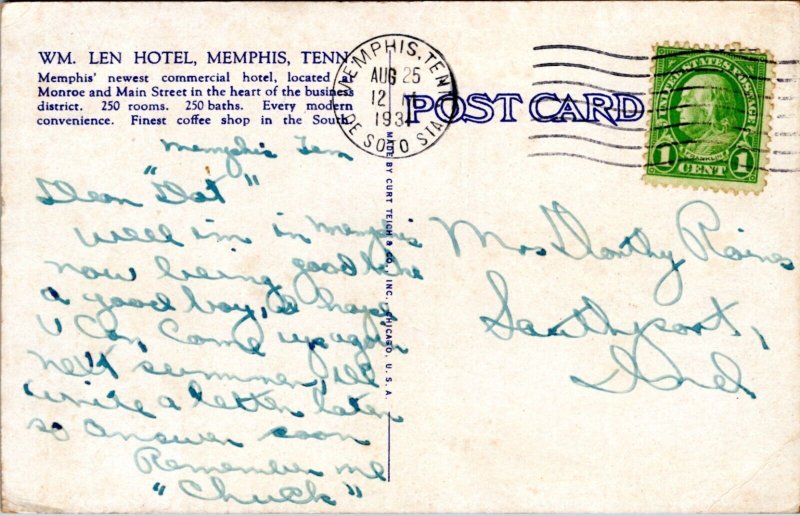 WM. LEN HOTEL, MEMPHIS, TENN.
Memphis' newest commercial hotel, located at
Monroe and Main Street in the heart of the business
district. 250 rooms. 250 baths. Every modern
convenience. Finest coffee shop in the South
Memphis Tenn
Dear "Dot"
Well im in Memphis
now being good like
a good boy, I hope
U can come up again
next summer, ill
write a letter later
so answer soon
Remember me
"Chuck"
MADE BY CURT TEICH & CO., INC., CHICAGO, U.S.A.
MEMPHIS, TENN.
AUG 25
12
193
DE SOTO STA.
POST CARD
UNITED STATES POSTAGE
FRANKLIN
1 CENT 1
Mrs Dorothy Raines
Southport,
Ind.